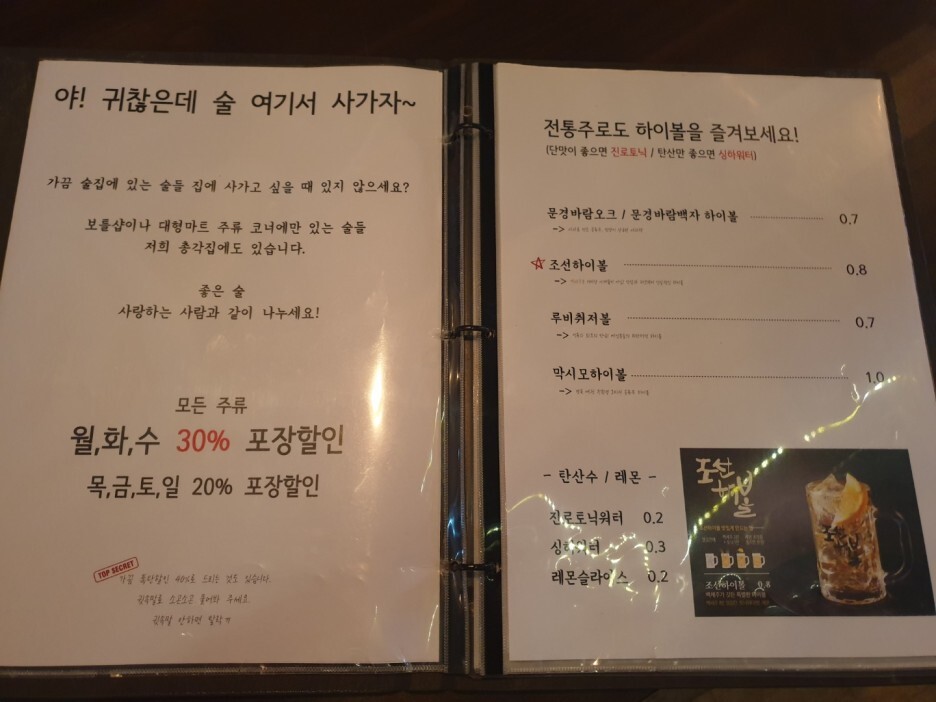 야! 귀찮은데 술 여기서 사가자~
가끔 술집에 있는 술들 집에 사가고 싶을 때 있지 않으세요?
보틀샵이나 대형마트 주류 코너에만 있는 술들
저희 총각집에도 있습니다.
좋은 술
사랑하는 사람과 같이 나누세요!
모든 주류
월,화,수 30% 포장할인
목,금,토,일 20% 포장할인
TOP SECRET
가끔 폭탄할인 40%로 드리는 것도 있습니다.
귓속말로 소곤소곤 물어봐 주세요.
귓속말 안하면 탈락ㅠ
전통주로도 하이볼을 즐겨보세요!
(단맛이 좋으면 진로토닉 / 탄산만 좋으면 싱하워터)
문경바람오크 / 문경바람백자 하이볼 0.7
->
조선하이볼 0.8
->
루비취저볼 0.7
->
막시모하이볼 1.0
->
- 탄산수 / 레몬 -
진로토닉워터 0.2
싱하워터 0.3
레몬슬라이스 0.2
조선
하이볼
조선하이볼 0.8